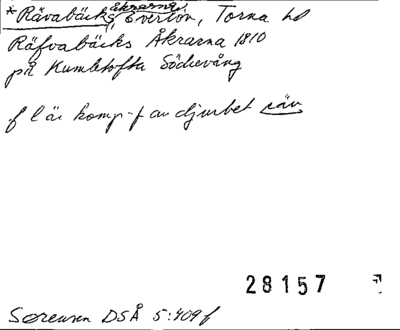 *Rävabäcksåkrarna, Everlöv, Torna hd
Räfvabäcks Åkrarna 1810
på Kumletofta Södervång
f l är komp-f av djurbet räv
28157
Sørensen DSÅ 5:409 f